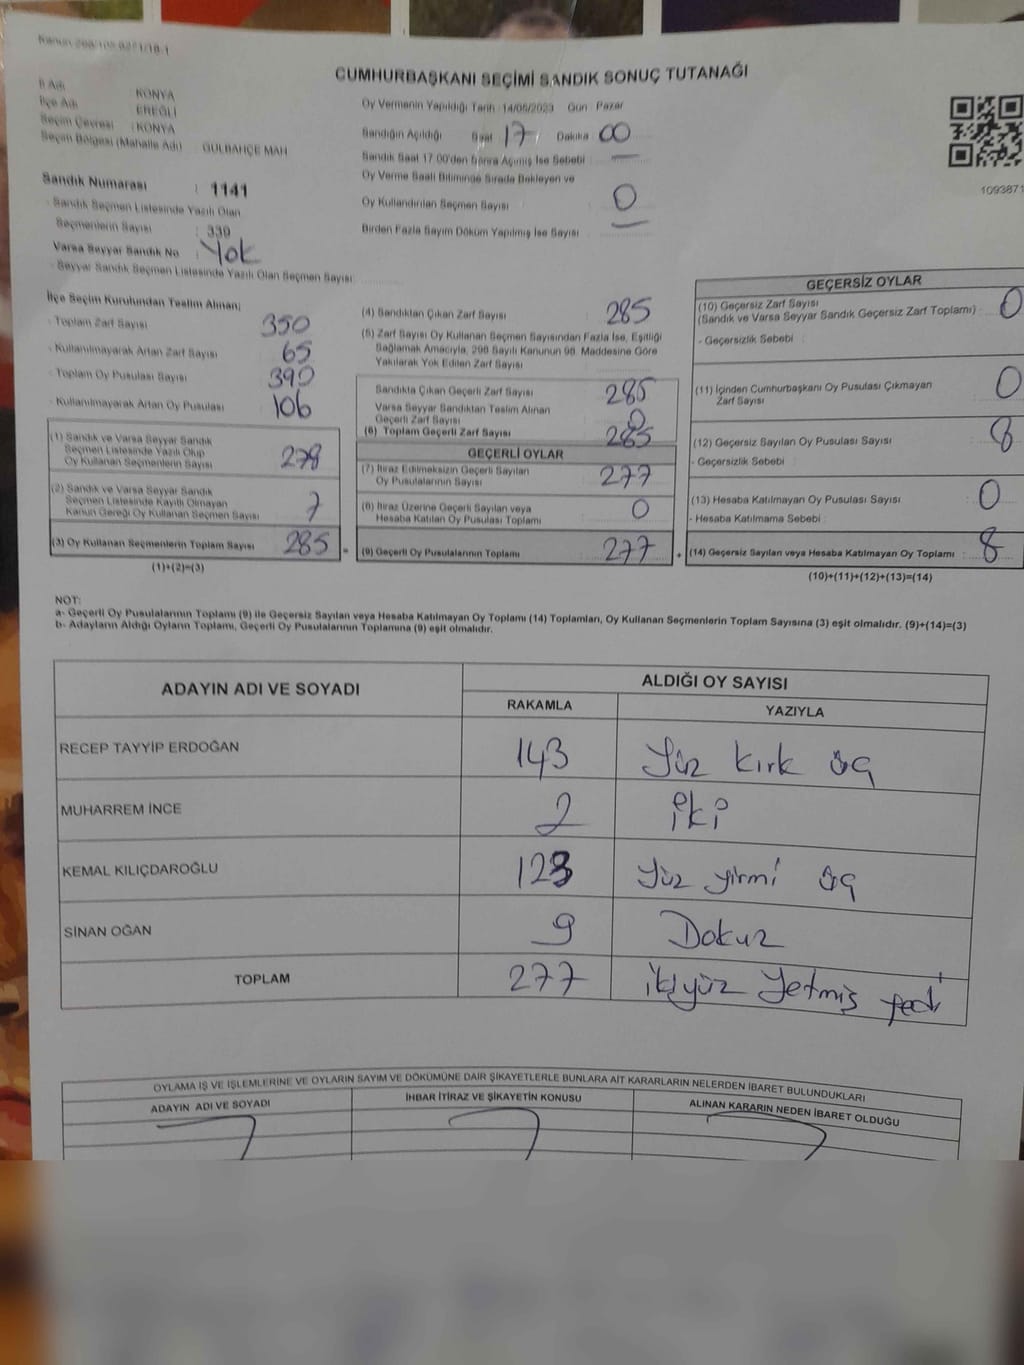 CUMHURBAŞKANI SEÇİMİ SANDIK SONUÇ TUTANAĞI
İl Adı : KONYA
İlçe Adı : EREĞLİ
Seçim Çevresi : KONYA
Seçim Bölgesi (Mahalle Adı) GÜLBAHÇE MAH
Sandık Numarası : 1141
- Sandık Seçmen Listesinde Yazılı Olan
Seçmenlerin Sayısı : 339
Varsa Seyyar Sandık No : Yok
- Seyyar Sandık Seçmen Listesinde Yazılı Olan Seçmen Sayısı:
Oy Vermenin Yapıldığı Tarih : 14/05/2023 Gün : Pazar
Sandığın Açıldığı Saat 17 Dakika 00
Sandık Saat 17.00'den Sonra Açılmış İse Sebebi : —
Oy Verme Saati Bitiminde Sırada Bekleyen ve
Oy Kullandırılan Seçmen Sayısı : 0
Birden Fazla Sayım Döküm Yapılmış İse Sayısı : —
1093871
İlçe Seçim Kurulundan Teslim Alınan;
- Toplam Zarf Sayısı 350
- Kullanılmayarak Artan Zarf Sayısı 65
- Toplam Oy Pusulası Sayısı 390
- Kullanılmayarak Artan Oy Pusulası 106
(1) Sandık ve Varsa Seyyar Sandık
Seçmen Listesinde Yazılı Olup
Oy Kullanan Seçmenlerin Sayısı 278
(2) Sandık ve Varsa Seyyar Sandık
Seçmen Listesinde Kayıtlı Olmayan
Kanun Gereği Oy Kullanan Seçmen Sayısı 7
(3) Oy Kullanan Seçmenlerin Toplam Sayısı 285 =
(1)+(2)=(3)
(4) Sandıktan Çıkan Zarf Sayısı : 285
(5) Zarf Sayısı Oy Kullanan Seçmen Sayısından Fazla İse, Eşitliği
Sağlamak Amacıyla, 298 Sayılı Kanunun 98. Maddesine Göre
Yakılarak Yok Edilen Zarf Sayısı :
Sandıkta Çıkan Geçerli Zarf Sayısı : 285
Varsa Seyyar Sandıktan Teslim Alınan
Geçerli Zarf Sayısı : 0
(6) Toplam Geçerli Zarf Sayısı : 285
GEÇERLİ OYLAR
(7) İtiraz Edilmeksizin Geçerli Sayılan
Oy Pusulalarının Sayısı : 277
(8) İtiraz Üzerine Geçerli Sayılan veya
Hesaba Katılan Oy Pusulası Toplamı : 0
(9) Geçerli Oy Pusulalarının Toplamı : 277 +
GEÇERSİZ OYLAR
(10) Geçersiz Zarf Sayısı
(Sandık ve Varsa Seyyar Sandık Geçersiz Zarf Toplamı) : 0
- Geçersizlik Sebebi :
(11) İçinden Cumhurbaşkanı Oy Pusulası Çıkmayan
Zarf Sayısı : 0
(12) Geçersiz Sayılan Oy Pusulası Sayısı : 8
- Geçersizlik Sebebi :
(13) Hesaba Katılmayan Oy Pusulası Sayısı : 0
- Hesaba Katılmama Sebebi :
(14) Geçersiz Sayılan veya Hesaba Katılmayan Oy Toplamı : 8
(10)+(11)+(12)+(13)=(14)
NOT:
a- Geçerli Oy Pusulalarının Toplamı (9) ile Geçersiz Sayılan veya Hesaba Katılmayan Oy Toplamı (14) Toplamları, Oy Kullanan Seçmenlerin Toplam Sayısına (3) eşit olmalıdır. (9)+(14)=(3)
b- Adayların Aldığı Oyların Toplamı, Geçerli Oy Pusulalarının Toplamına (9) eşit olmalıdır.
ADAYIN ADI VE SOYADI ALDIĞI OY SAYISI
RAKAMLA YAZIYLA
RECEP TAYYİP ERDOĞAN 143 Yüz kırk üç
MUHARREM İNCE 2 iki
KEMAL KILIÇDAROĞLU 123 Yüz yirmi üç
SİNAN OĞAN 9 Dokuz
TOPLAM 277 ikiyüz yetmiş yedi
OYLAMA İŞ VE İŞLEMLERİNE VE OYLARIN SAYIM VE DÖKÜMÜNE DAİR ŞİKAYETLERLE BUNLARA AİT KARARLARIN NELERDEN İBARET BULUNDUKLARI
ADAYIN ADI VE SOYADI İHBAR İTİRAZ VE ŞİKAYETİN KONUSU ALINAN KARARIN NEDEN İBARET OLDUĞU